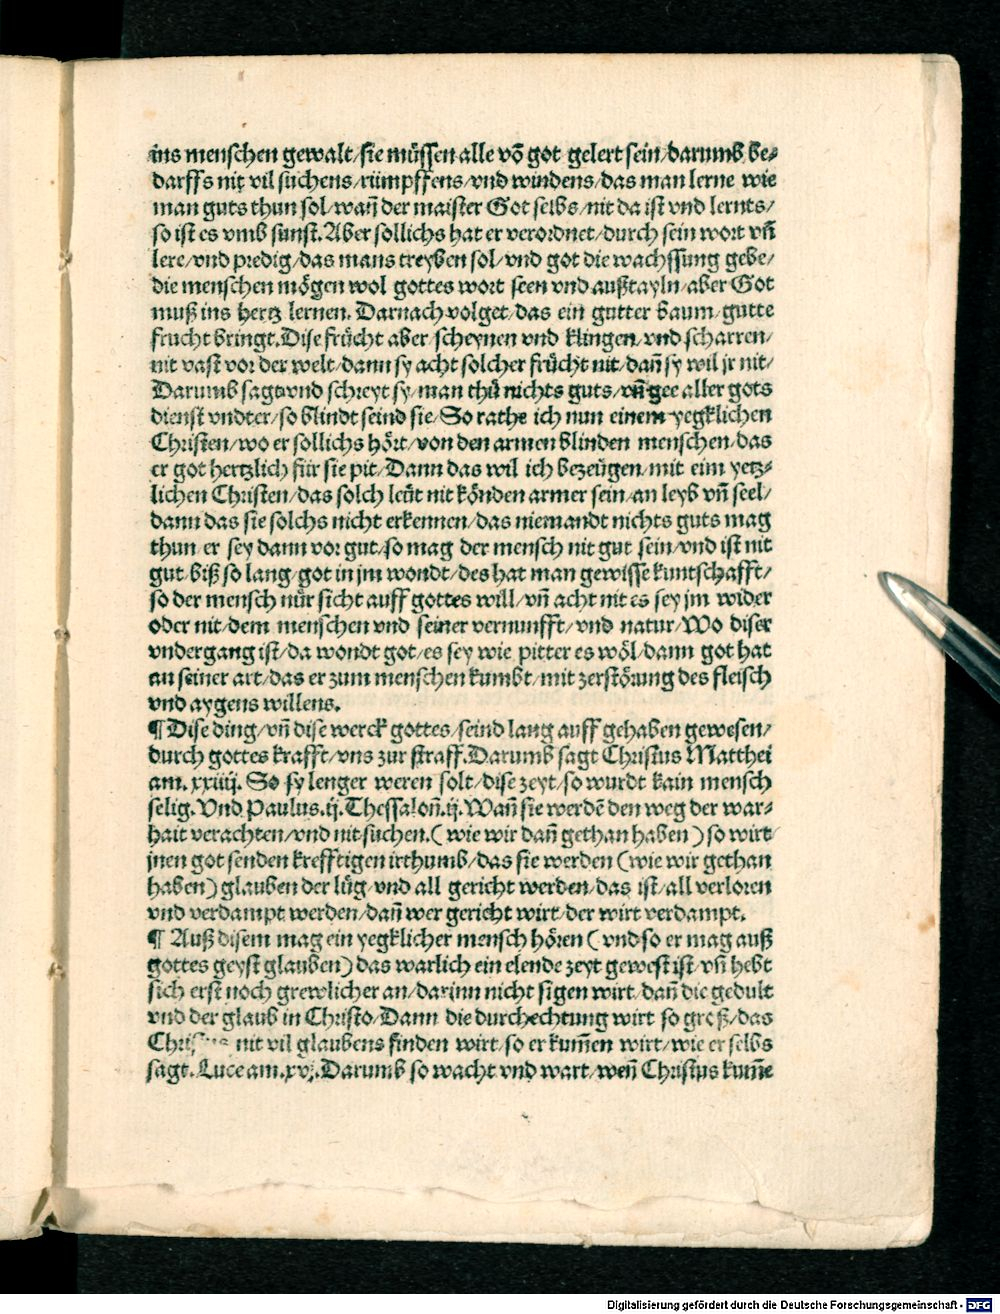 ins menschen gewalt/sie müssen alle vō got gelert sein/darumb be⸗
darffs nit vil suchens/rümpffens/vnd windens/das man lerne wie
man guts thun sol/wañ der maister Got selbs/nit da ist vnd lernts/
so ist es vmb sunst. Aber sollichs hat er verordnet/durch sein wort vñ
lere/vnd predig/das mans treyben sol/vnd got die wachssung gebe/
die menschen mögen wol gottes wort seen vnd außtayln/aber Got
muß ins hertz lernen. Darnach volget/das ein gutter baum/gutte
frucht bringt. Dise frücht aber/scheynen vnd klingen/vnd scharren/
nit vast vor der welt/dann sy acht solcher frücht nit/dañ sy wil jr nit/
Darumb sagt vnd schreyt sy/man thü nichts guts/vñ gee aller gots
dienst vndter/so blindt seind sie/So rathe ich nun einem yegklichen
Christen/wo er sollichs hört/von den armen blinden menschen/das
er got hertzlich für sie pit/Dann das wil ich bezeügen/mit eim yetz⸗
lichen Christen/das solch leüt nit könden armer sein/an leyb vñ seel/
dann das sie solchs nicht erkennen/das niemandt nichts guts mag
thun/er sey dann vor gut/so mag der mensch nit gut sein/vnd ist nit
gut/biß so lang/got in jm wondt/des hat man gewisse kuntschafft/
so der mensch nür sicht auff gottes will/vñ acht nit es sey jm wider
oder nit/dem menschen vnd seiner vernunfft/vnd natur/Wo diser
vndergang ist/da wondt got/es sey wie pitter es wöl/dann got hat
an seiner art/das er zum menschen kumbt/mit zerstörung des fleisch
vnd aygens willens.
¶ Dise ding/vñ dise werck gottes/seind lang auff gehaben gewesen/
durch gottes krafft/vns zur straff. Darumb sagt Christus Matthei
am. xxiiij. So sy lenger weren solt/dise zeyt/so wurdt kain mensch
selig. Vnd Paulus. ij. Thessaloñ. ij. Wañ sie werdē den weg der war⸗
hait verachten/vnd nit suchen. (wie wir dañ gethan haben) so wirt/
jnen got senden krefftigen irthumb/das sie werden (wie wir gethan
haben) glauben der lüg/vnd all gericht werden/das ist/all verloren
vnd verdampt werden/dañ wer gericht wirt/der wirt verdampt.
¶ Auß disem mag ein yegklicher mensch hören (vnd so er mag auß
gottes geyst glauben) das warlich ein elende zeyt gewest ist/vñ hebt
sich erst noch grewlicher an/darinn nicht sigen wirt/dañ die gedult
vnd der glaub in Christo/Dann die durchechtung wirt so groß/das
Christus nit vil glaubens finden wirt/so er kum̄en wirt/wie er selbs
sagt. Luce am. xvj. Darumb so wacht vnd wart/weñ Christus kum̄e
Digitalisierung gefördert durch die Deutsche Forschungsgemeinschaft - DFG